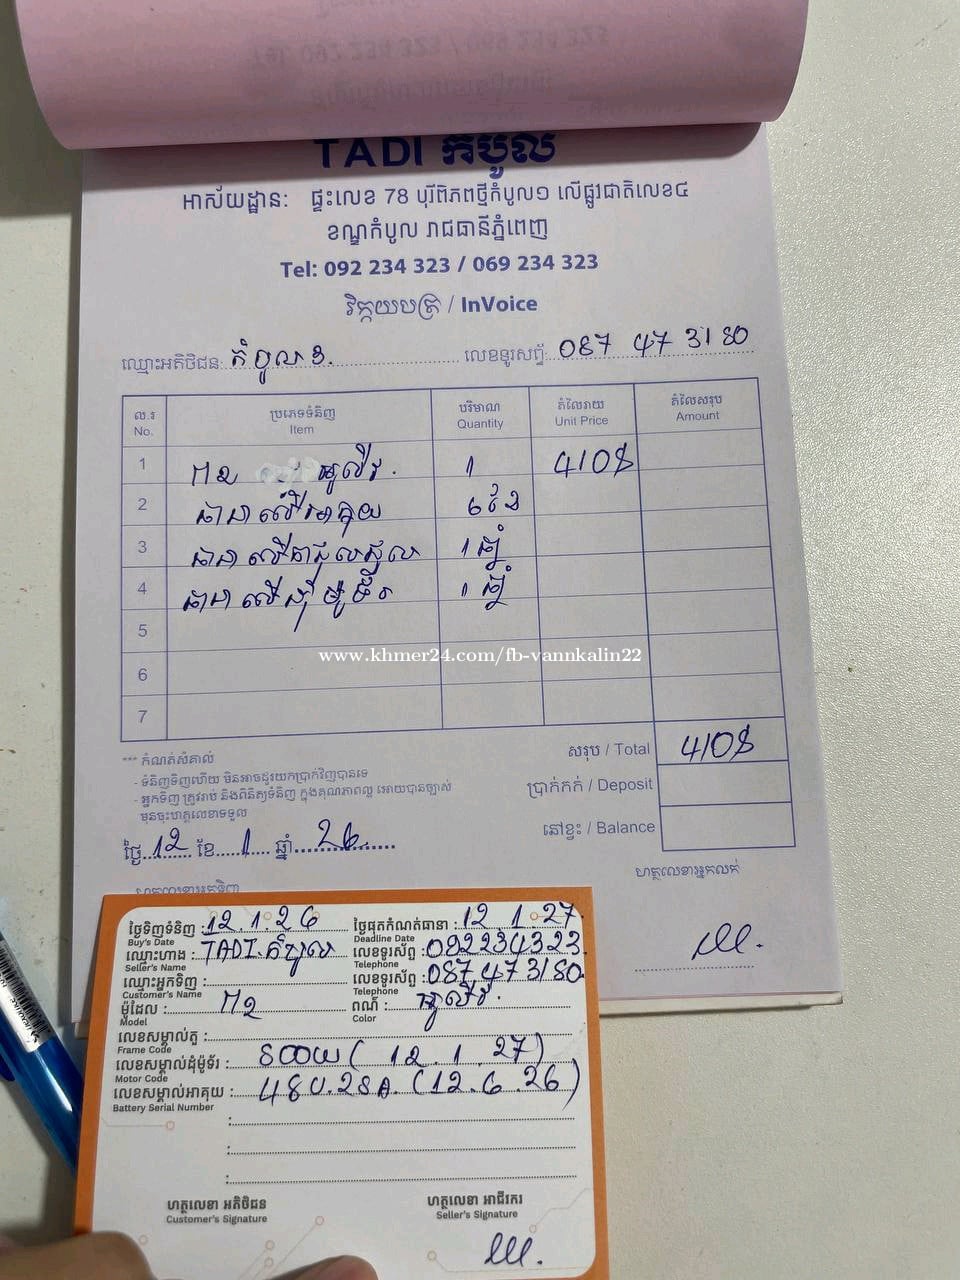 TADI កំបូល
អាស័យដ្ឋាន: ផ្ទះលេខ 78 បុរីពិភពថ្មីកំបូល១ លើផ្លូវជាតិលេខ៤
ខណ្ឌកំបូល រាជធានីភ្នំពេញ
Tel: 092 234 323 / 069 234 323
វិក្កយបត្រ / InVoice
ឈ្មោះអតិថិជន: កំបូល លេខទូរសព្ទ័: 087 47 31 80
ល.រ ប្រភេទទំនិញ បរិមាណ តំលៃរាយ តំលៃសរុប
No. Item Quantity Unit Price Amount
1 M2 អូលីវ. 1 410$
2 ធានាលើអាគុយ 6 ខែ
3 ធានាលើ 1 ឆ្នាំ
4 ធានាលើ ម៉ូទ័រ 1 ឆ្នាំ
5
www.khmer24.com/fb-vannkalin22
6
7
សរុប / Total 410$
*** កំណត់សំគាល់
- ទំនិញទិញហើយ មិនអាចដូរយកប្រាក់វិញបានទេ
ប្រាក់កក់ / Deposit
- អ្នកទិញ ត្រូវរាប់ និងពិនិត្យទំនិញ ក្នុងគុណភាពល្អ អោយបានច្បាស់
មុនចុះហត្ថលេខាទទួល
នៅខ្វះ / Balance
ថ្ងៃ 12 ខែ 1 ឆ្នាំ 26
ហត្ថលេខាអ្នកលក់
ហត្ថលេខាអ្នកទិញ
ថ្ងៃទិញទំនិញ : 12.1.26 ថ្ងៃផុតកំណត់ធានា : 12 1.27
Buy's Date Deadline Date
ឈ្មោះហាង : TADI.កំបូល លេខទូរស័ព្ទ : 092234323
Seller's Name Telephone
ឈ្មោះអ្នកទិញ : លេខទូរស័ព្ទ : 087 47 3180
Customer's Name Telephone
ម៉ូដែល : M2 ពណ៌ : អូលីវ.
Model Color
លេខសម្គាល់តួ :
Frame Code
លេខសម្គាល់ដុំម៉ូទ័រ : 800W ( 12 . 1 . 27 )
Motor Code
លេខសម្គាល់អាគុយ : 48V.28A. (12.6.26)
Battery Serial Number
ហត្ថលេខា អតិថិជន ហត្ថលេខា អាជីវករ
Customer's Signature Seller's Signature